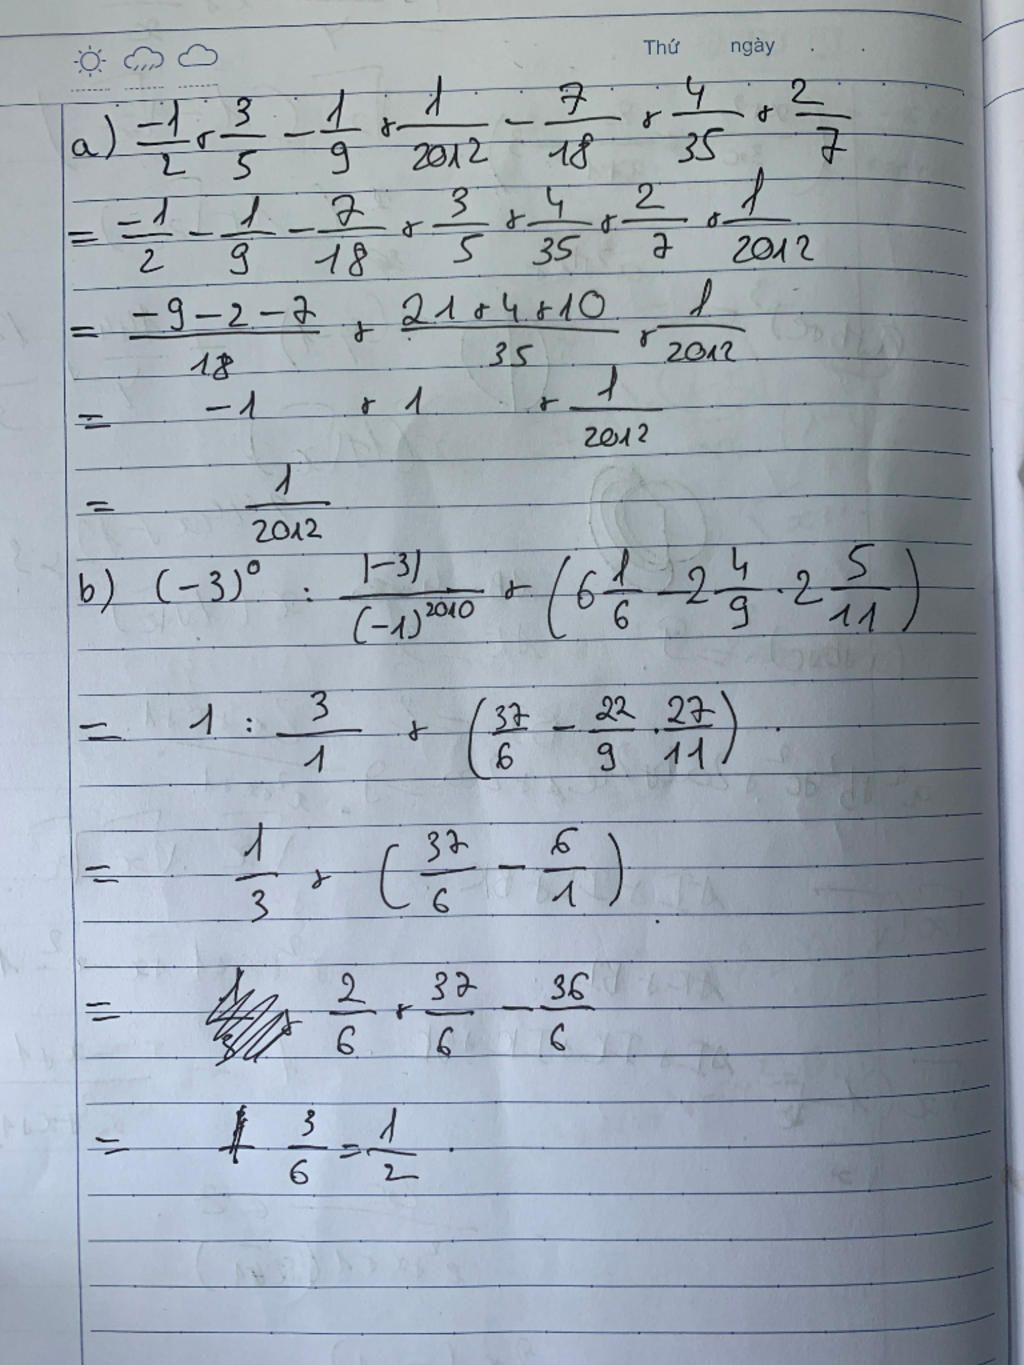 Thứ ngày . .
a) -1/2 + 3/5 - 1/9 + 1/2012 - 7/18 + 4/35 + 2/7
= -1/2 - 1/9 - 7/18 + 3/5 + 4/35 + 2/7 + 1/2012
= -9-2-7/18 + 21+4+10/35 + 1/2012
= -1 + 1 + 1/2012
= 1/2012
b) (-3)⁰ : |-3|/(-1)²⁰¹⁰ + (6 1/6 - 2 4/9 . 2 5/11)
= 1 : 3/1 + (37/6 - 22/9 . 27/11)
= 1/3 + (37/6 - 6/1)
= 2/6 + 37/6 - 36/6
= 3/6 = 1/2 .